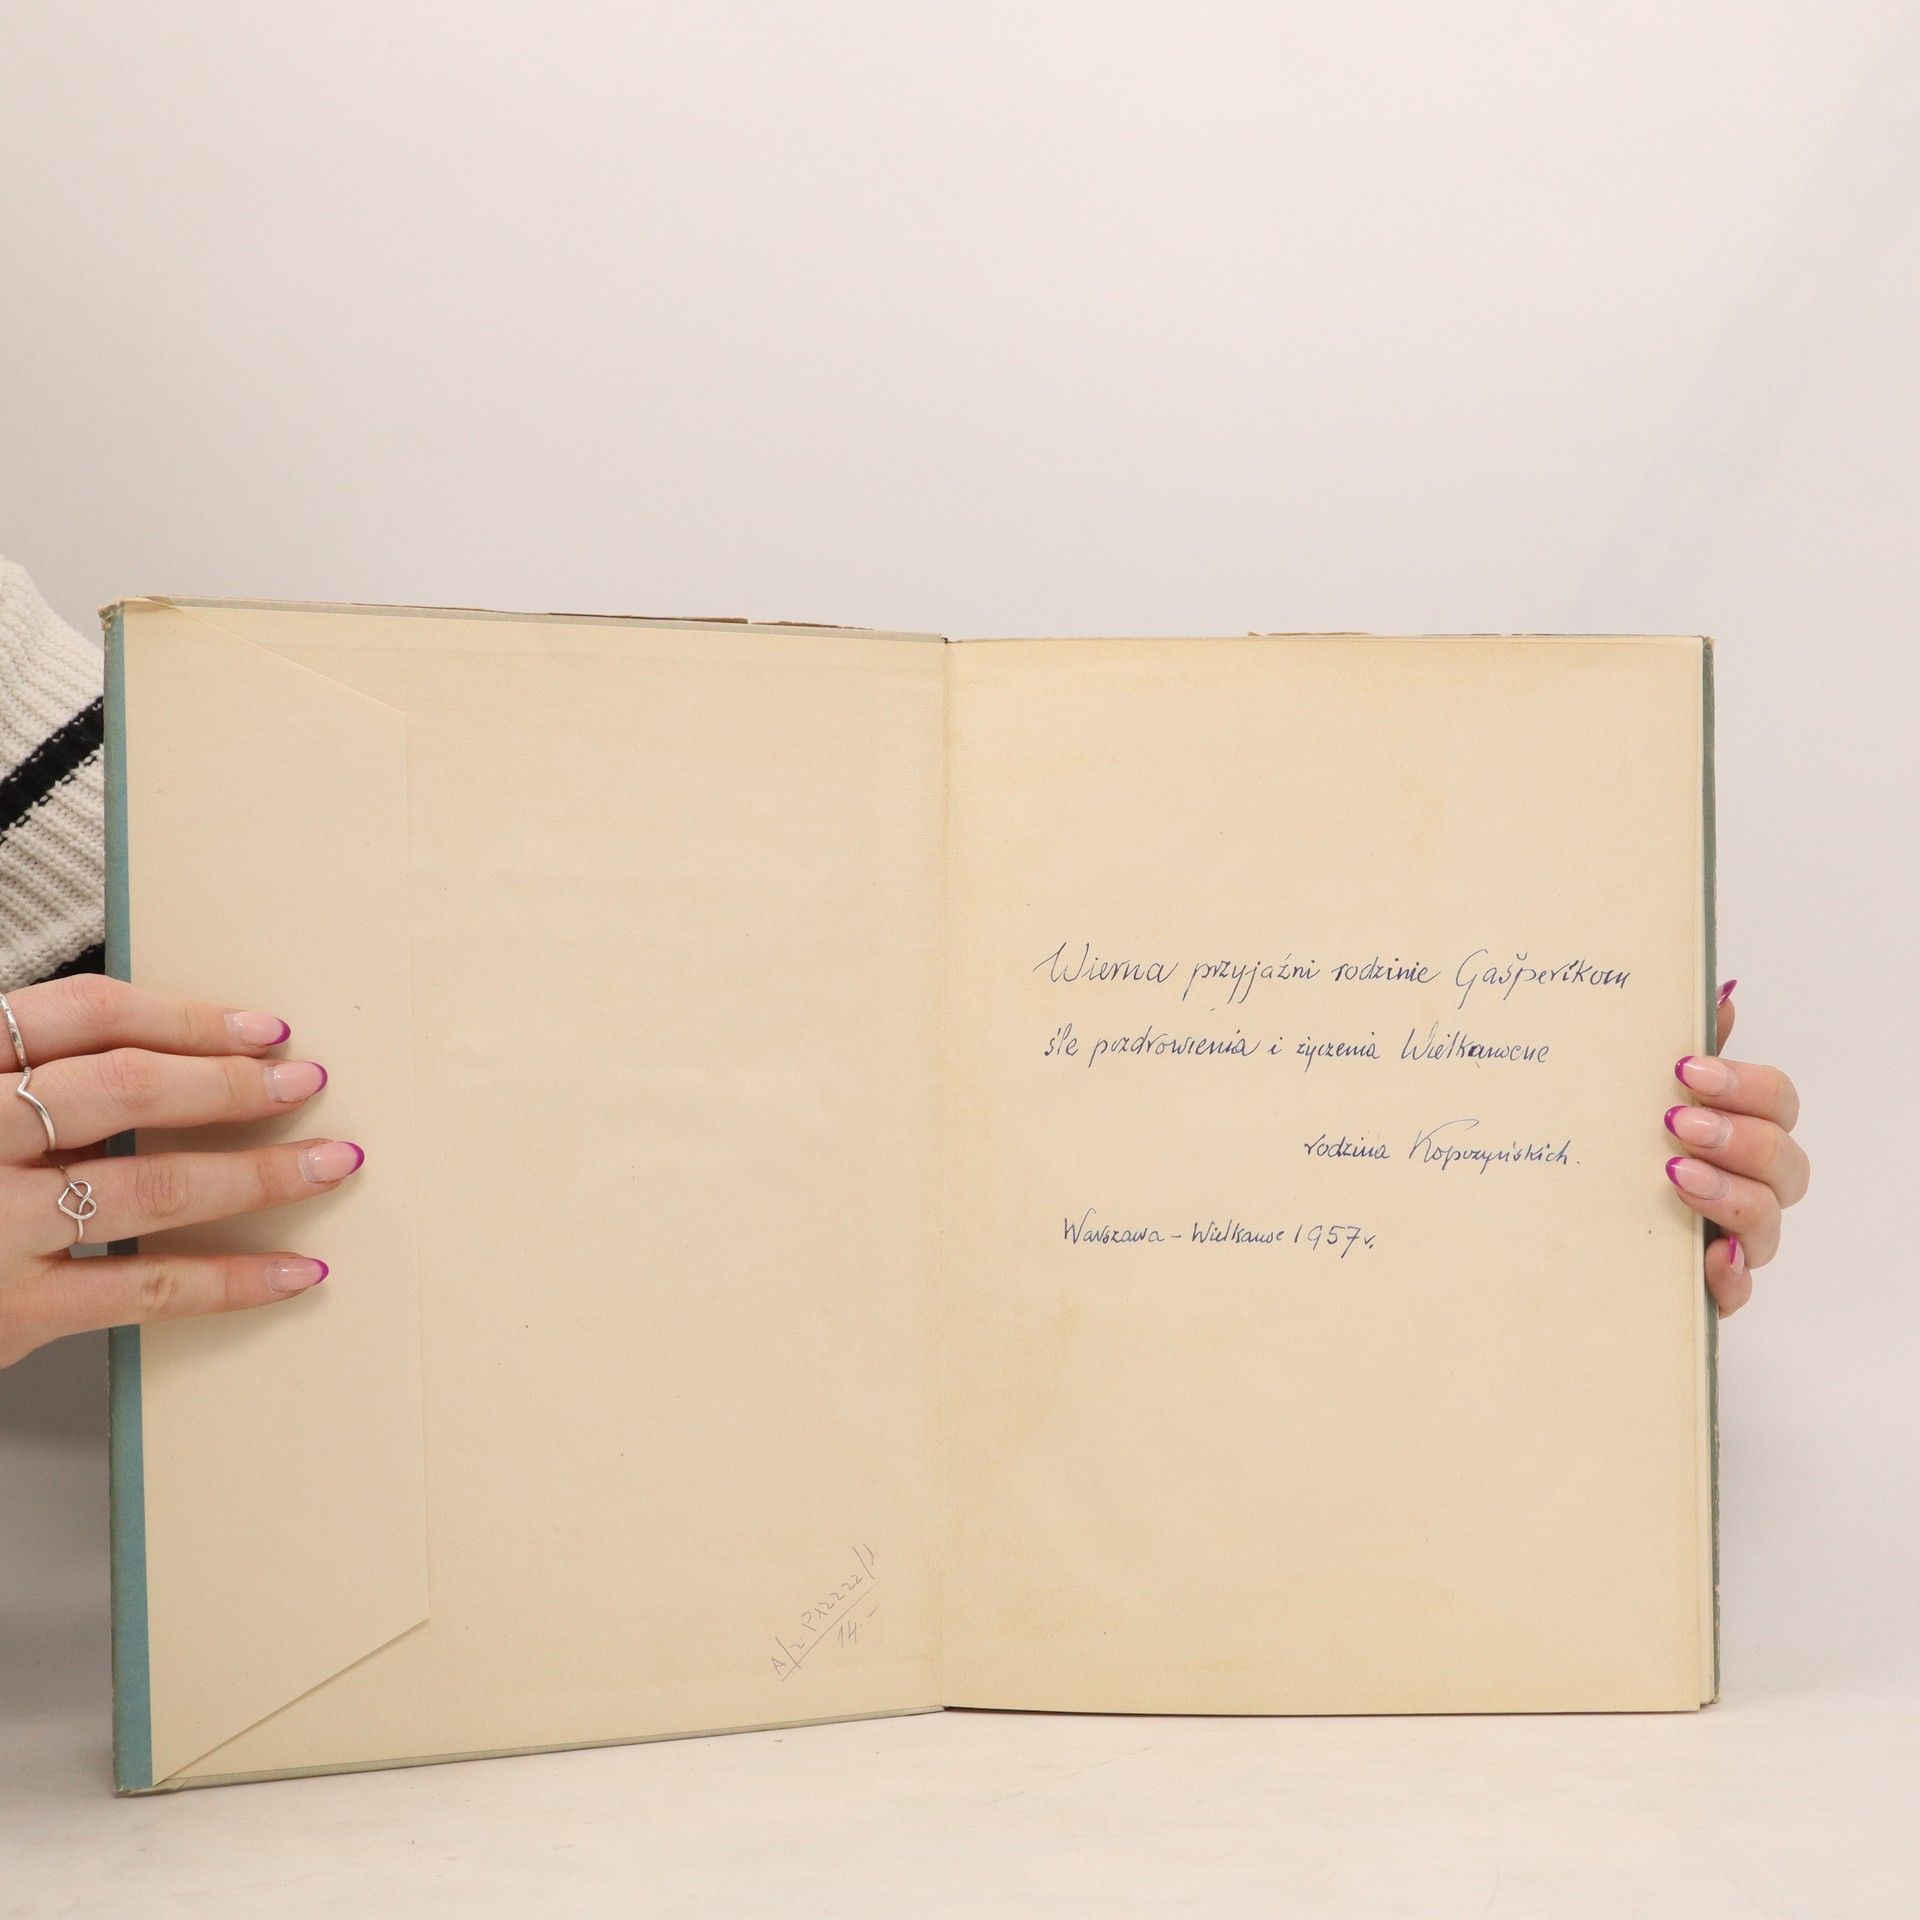 A/2 P12222/1
14 -
Wierna przyjaźni rodzinie Gašperikom
śle pozdrowienia i życzenia Wielkanocne
rodzina Kopczyńskich.
Warszawa - Wielkanoc 1957 r.